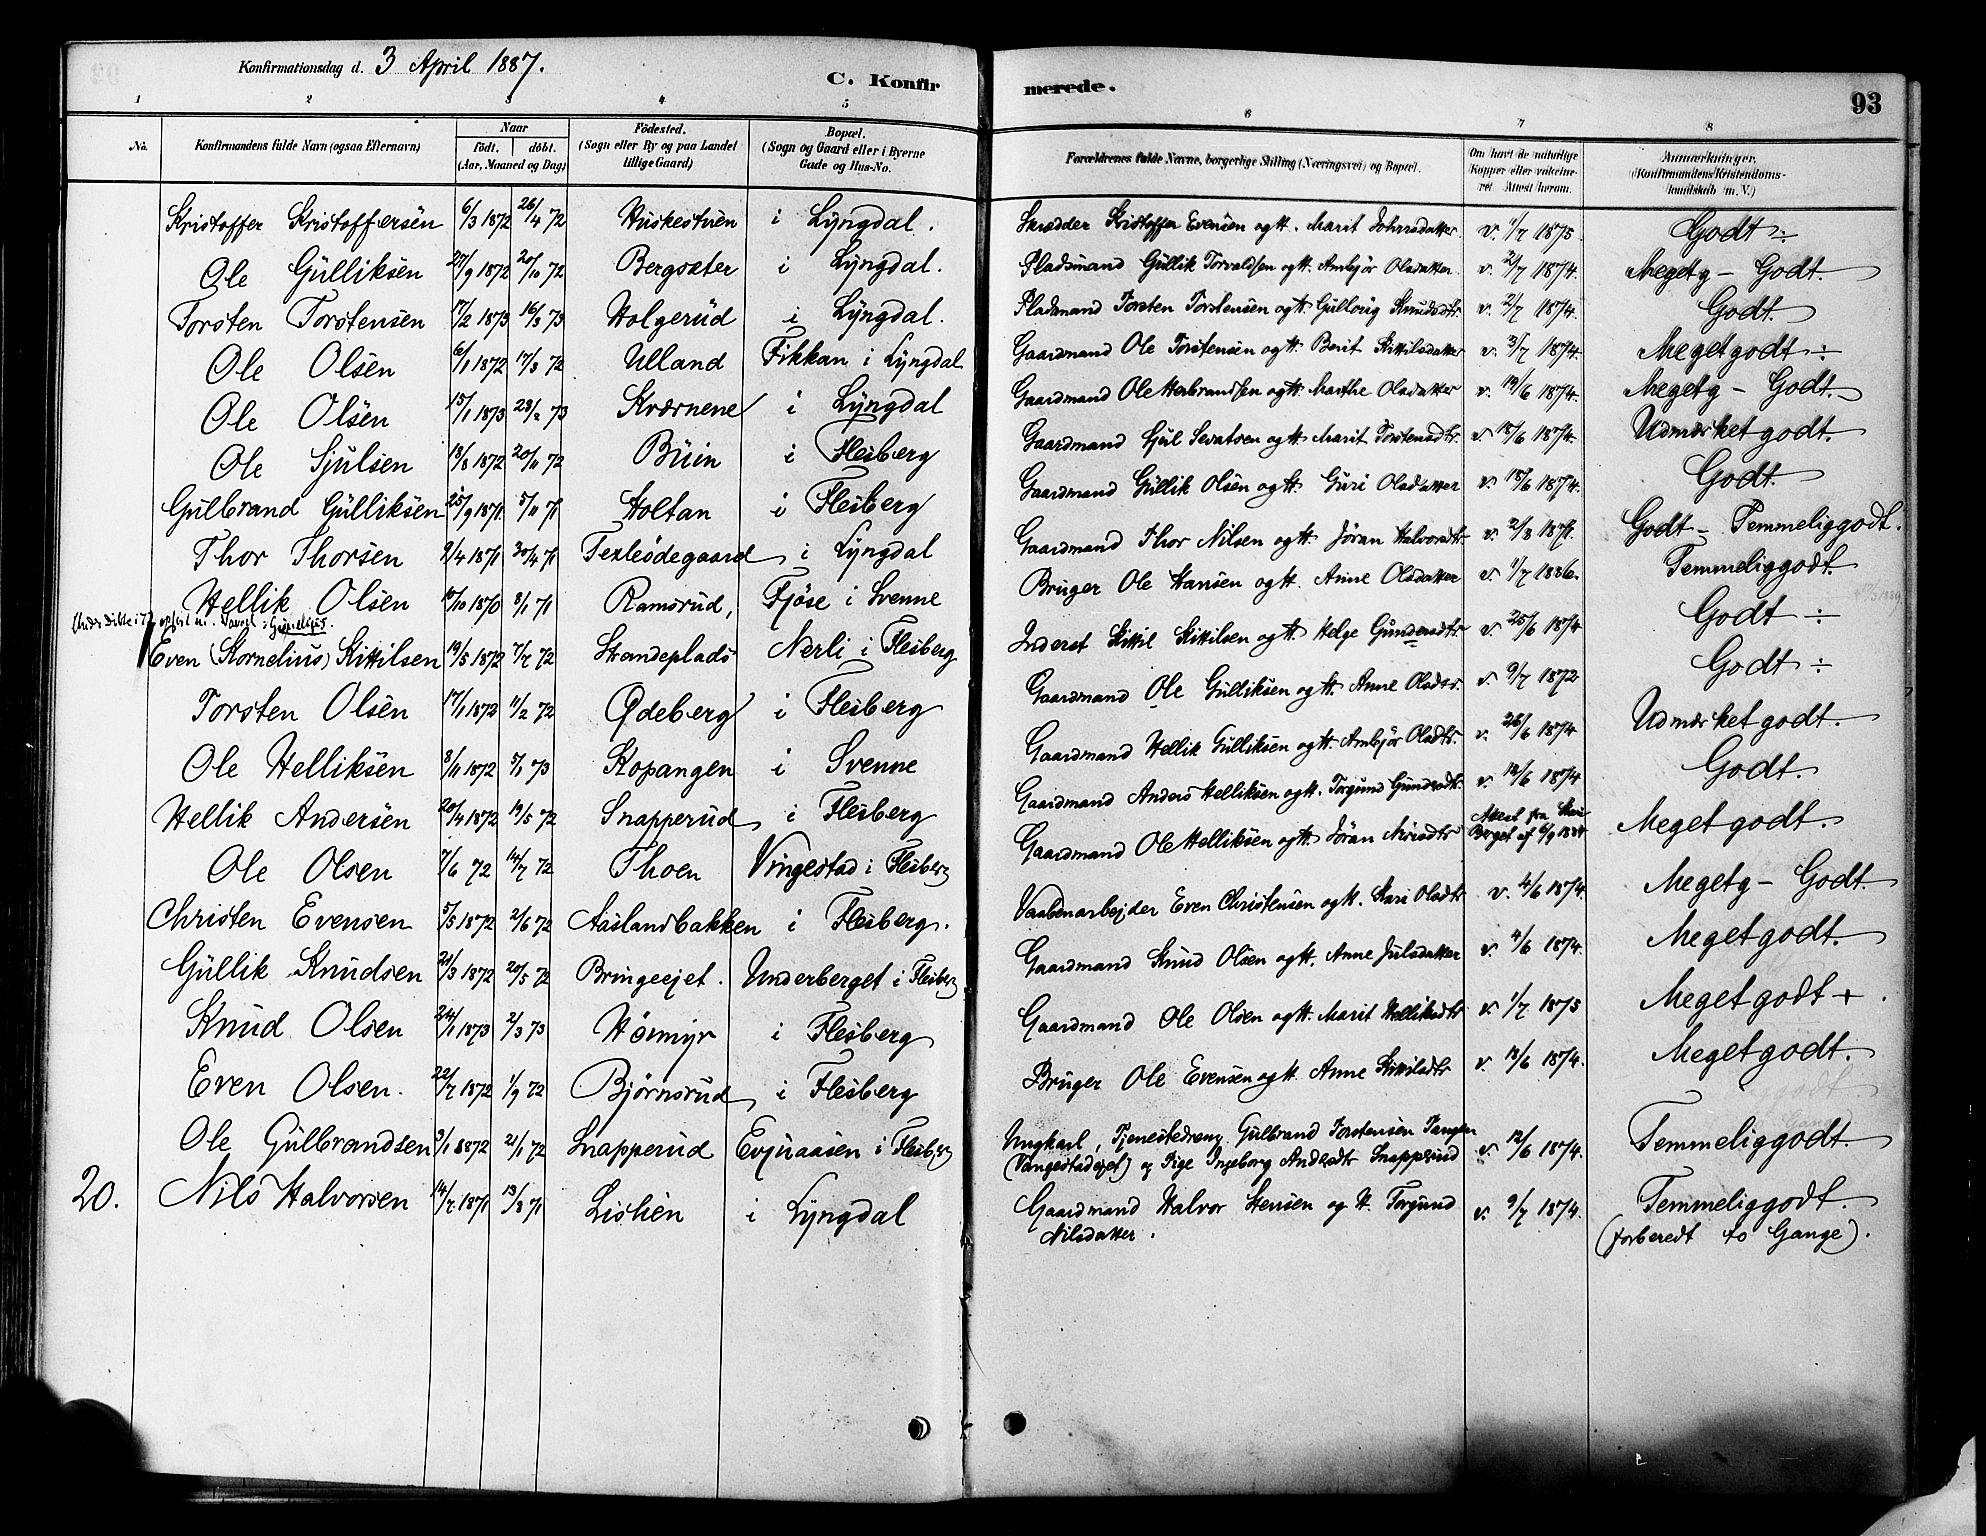 Konfirmationsdag d. 3 April 1887.
C. Konfir
merede.
93
1 2 3 4 5 6 7 8
No.
Konfirmandens fulde Navn (ogsaa Efternavn)
Naar
födt. döbt.
(Aar, Maaned og Dag)
Födested.
(Sogn eller By og paa Landet
tillige Gaard)
Bopæl.
(Sogn og Gaard eller i Byerne
Gade og Hus-No.
Forældrenes fulde Navne, borgerlige Stilling (Næringsvei) og Bopæl.
Om havt de naturlige
Kopper eller vaksine-
ret Attest herom.
Anmærkninger.
(Konfirmandens Kristendoms-
kundskab m. V.)
Kristoffer Kristoffersen 6/3 1872 26/4 72 Huskestuen i Lyngdal. Skrædder Kristoffer Evensen og H. Marit Johnsdatter v. 1/7 1875. Godt ÷
Ole Gulliksen 27/9 1872 20/10 72 Bergsæter i Lyngdal. Pladsmand Gullik Torvaldsen og H. Ambjør Olsdatter v. 2/7 1874. Megetg – Godt.
Torsten Torstensen 17/2 1873 16/3 73 Holgerud i Lyngdal. Pladsmand Torsten Torstensen og H. Gullovig Knudsdtr. v. 2/7 1874. Godt.
Ole Olsen 6/1 1872 17/3 72 Ulland Fikkan i Lyngdal Gaardmand Ole Torstensen og H. Berit Kittilsdatter v. 3/7 1874. Megetgodt ÷
Ole Olsen 15/1 1873 23/2 73 Kværnene i Lyngdal Gaardmand Ole Herbrandsen og H. Marthe Olsdatter v. 19/6 1874. Megetg – Godt.
Ole Sjulsen 18/8 1872 20/11 72 Büin i Flesberg Gaardmand Sjul Sevatsen og H. Marit Torstensdtr. v. 18/6 1874. Udmærket godt.
Gulbrand Gulliksen 25/9 1871 5/11 71 Holtan i Flesberg Gaardmand Gullik Olsen og H. Guri Olsdatter v. 18/6 1874. Godt.
Thor Thorsen 2/4 1871 30/4 71 Texlesödegaard i Lyngdal Gaardmand Thor Nilsen og H. Jöran Halvorsdtr. v. 2/8 1871. Godt – Temmeliggodt.
Hellik Olsen 10/10 1870 8/1 71 Ramsrud, Fjöse i Svenne Bruger Ole Hansen og H. Anne Olsdatter v. 1/7 1886. Temmeliggodt.
Even (Kornelius) Kittilsen 19/5 1872 7/7 72 Strandeplads Nerli i Flesberg Inderst Kittil Kittilsen og H. Helge Gundersdtr v. 25/6 1874 Godt ÷
Torsten Olsen 17/1 1872 11/2 72 Ødeberg i Flesberg Gaardmand Ole Gulliksen og H. Anne Olsdtr. v. 9/7 1872 Godt ÷
Ole Helliksen 8/11 1872 5/1 73 Kopangen i Svenne Gaardmand Hellik Gulliksen og H. Ambjör Olsdtr. v. 26/6 1874 Udmærket godt.
Hellik Andersen 20/4 1872 19/5 72 Snapperud i Flesberg Gaardmand Anders Helliksen og H. Torgund Gundersdtr. v. 18/6 1874 Godt.
Ole Olsen 7/6 72 14/7 72 Thoen Vingestad i Flesberg Gaardmand Ole Helliksen og H. Jöran Nirisdtr Attest fra Skou
Berget af 6/9 1884 Megetgodt.
Christen Evensen 5/5 1872 2/6 72 Aaslandbakken i Flesberg. Vaabenarbejder Even Christensen og H. Kari Olsdtr v. 4/6 1874. Megetg – Godt.
Gullik Knudsen 21/3 1872 20/5 72 Bringeejet. Underberget i Flesberg Gaardmand Knud Olsen og H. Anne Julsdatter v. 4/6 1874. Megetgodt.
Knud Olsen 24/1 1873 2/3 73 Hörmyr i Flesberg Gaardmand Ole Olsen og H. Marit Helliksdtr v. 1/7 1875 Megetgodt +
Even Olsen. 22/7 1872 1/9 72 Björnsrud i Flesberg Bruger Ole Evensen og H. Anne Kittilsdtr v. 18/6 1874. Megetgodt.
Ole Gulbrandsen 9/1 1872 21/1 72 Snapperud Evjuaasen i Flesberg Ungkarl, Tjenestedreng Gulbrand Torstensen Tangen
(Vangestadejet) og Pige Ingeborg Andersdtr Snapperud v. 12/6 1874. Temmeliggodt.
20. Nils Halvorsen 14/7 1871 13/8 71 Lislien i Lyngdal Gaardmand Halvor Stensen og H. Torgund
Nilsdatter. v. 9/7 1874. Temmeliggodt.
(forberedt to Gange).